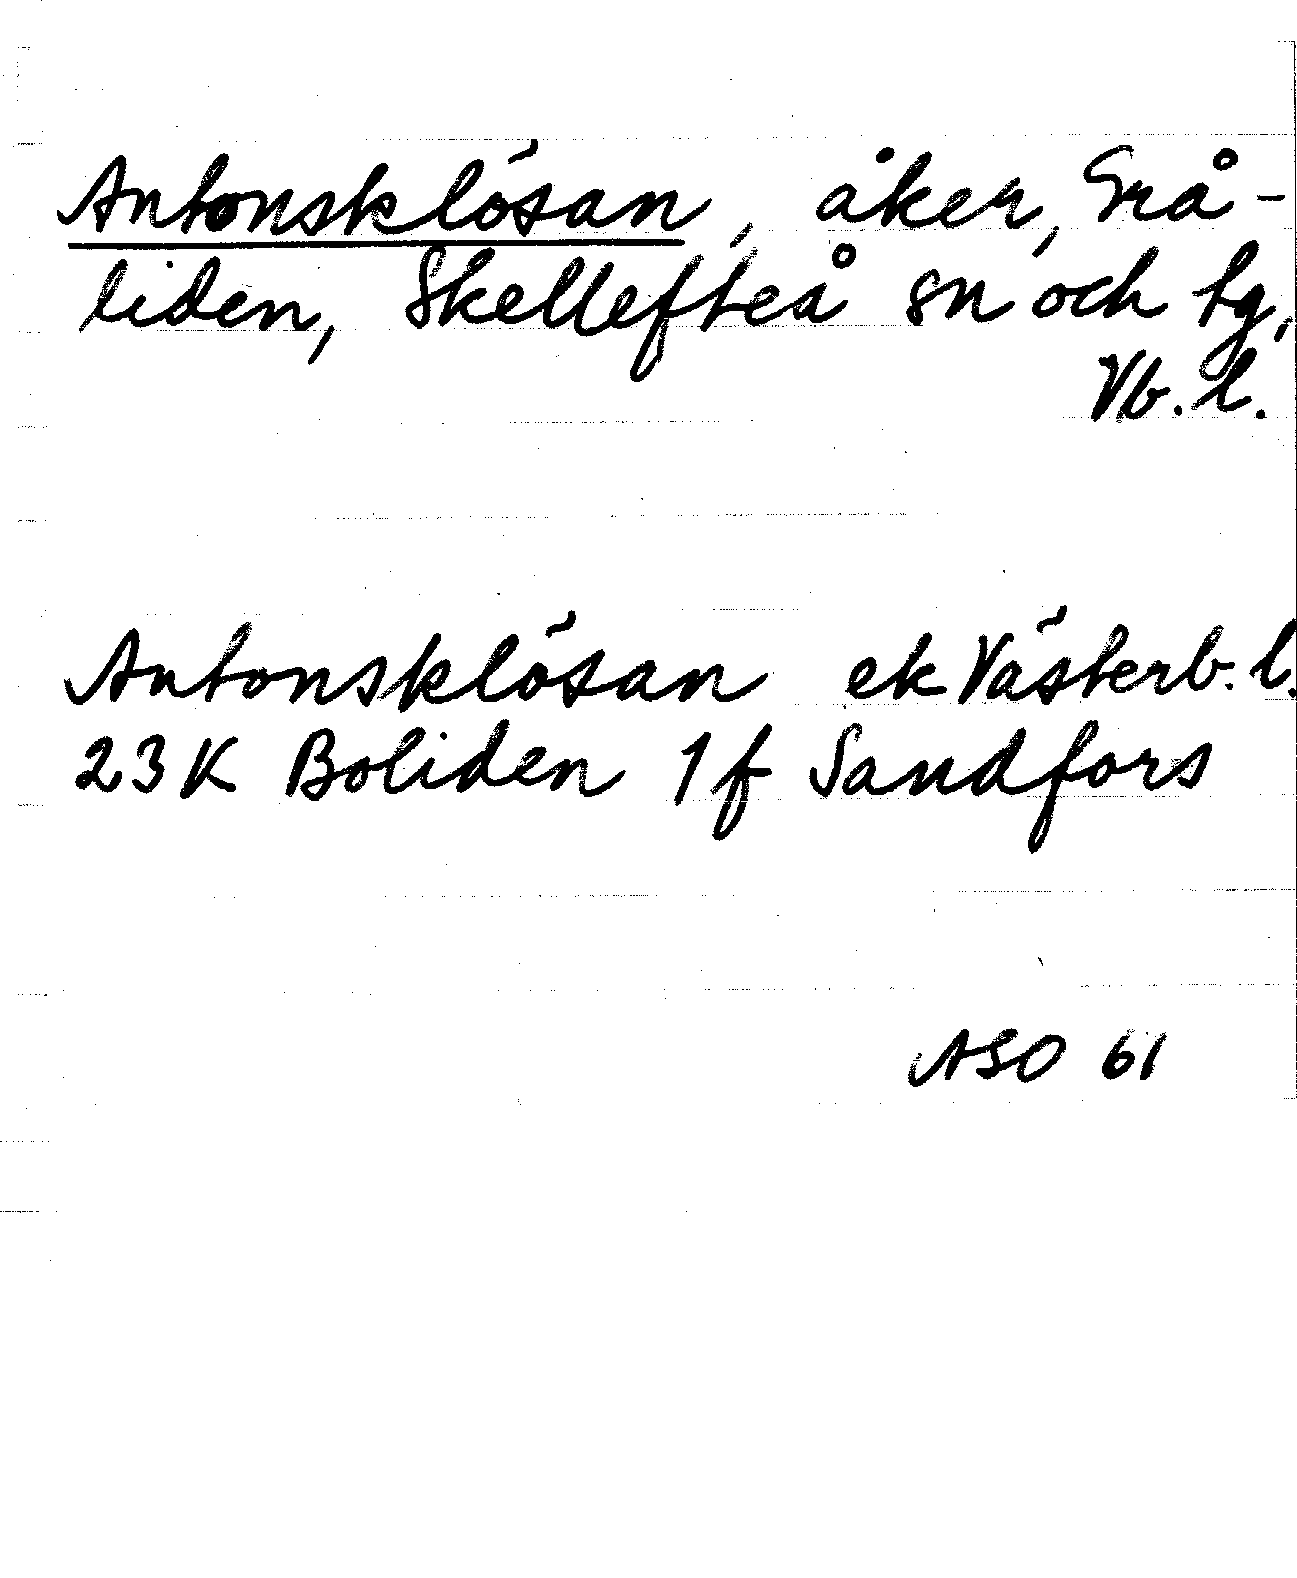 Antonsklösan, åker, Grå-
liden, Skellefteå sn och tg,
Vb. l.
Antonsklösan ek Västerb. l.
23K Boliden 1f Sandfors
ASO 61